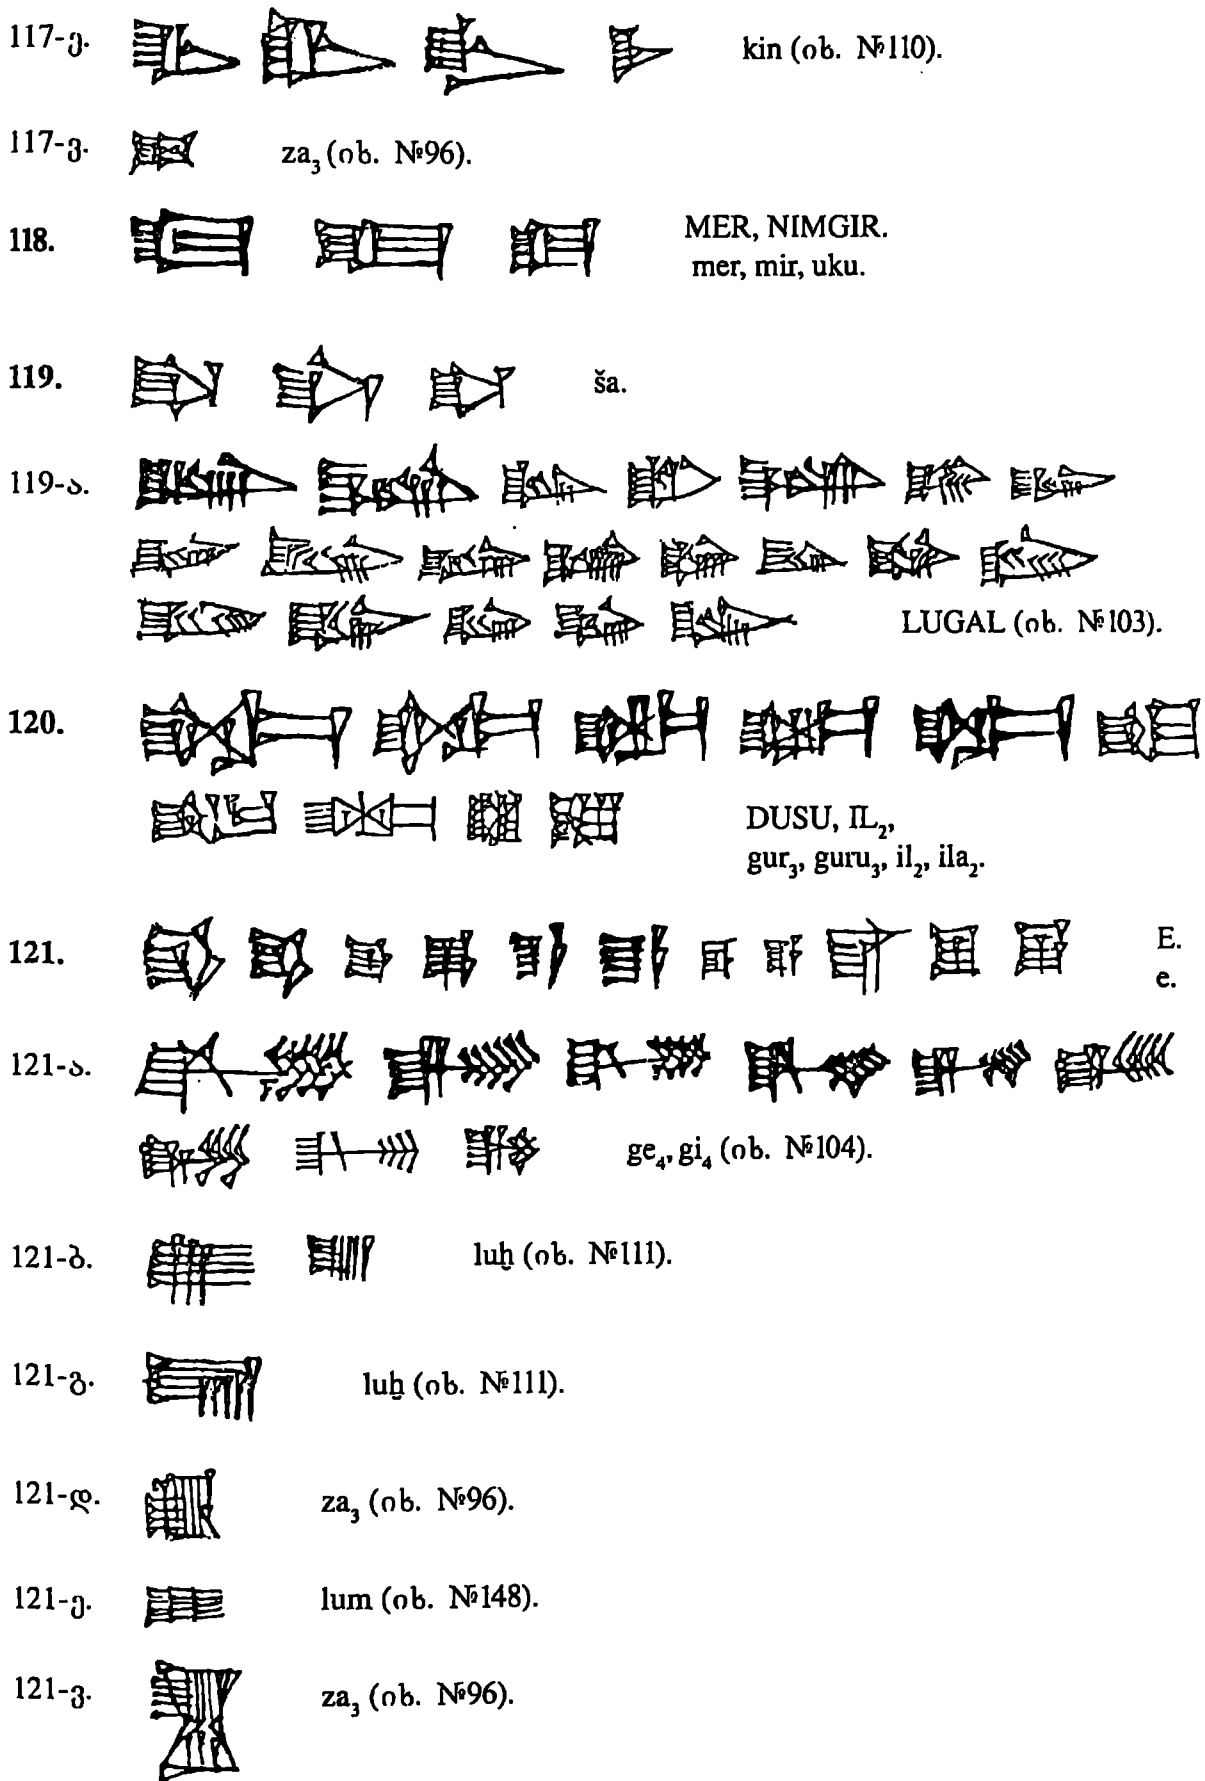 117-ე. kin (იხ. №110).
117-ვ. za₃ (იხ. №96).
118. MER, NIMGIR.
mer, mir, uku.
119. ša.
119-ა.
LUGAL (იხ. №103).
120.
DUSU, IL₂,
gur₃, guru₃, il₂, ila₂.
121. E.
e.
121-ა.
ge₄, gi₄ (იხ. №104).
121-ბ. luḫ (იხ. №111).
121-გ. luḫ (იხ. №111).
121-დ. za₃ (იხ. №96).
121-ე. lum (იხ. №148).
121-ვ. za₃ (იხ. №96).